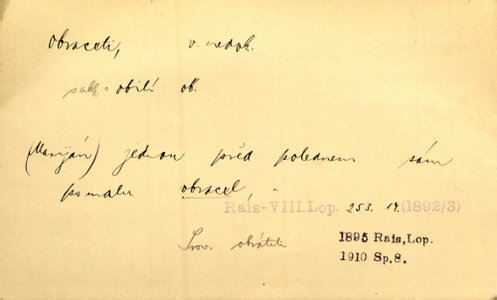 obraceti, v. nedok.
obilí ob.
(Marján) jednou před polednem sám
pomalu obracel, "
Rais-VIII, Lop. 253. 14. (1892/3)
Srov. obrátiti
1895 Rais, Lop.
1910 Sp, 8.